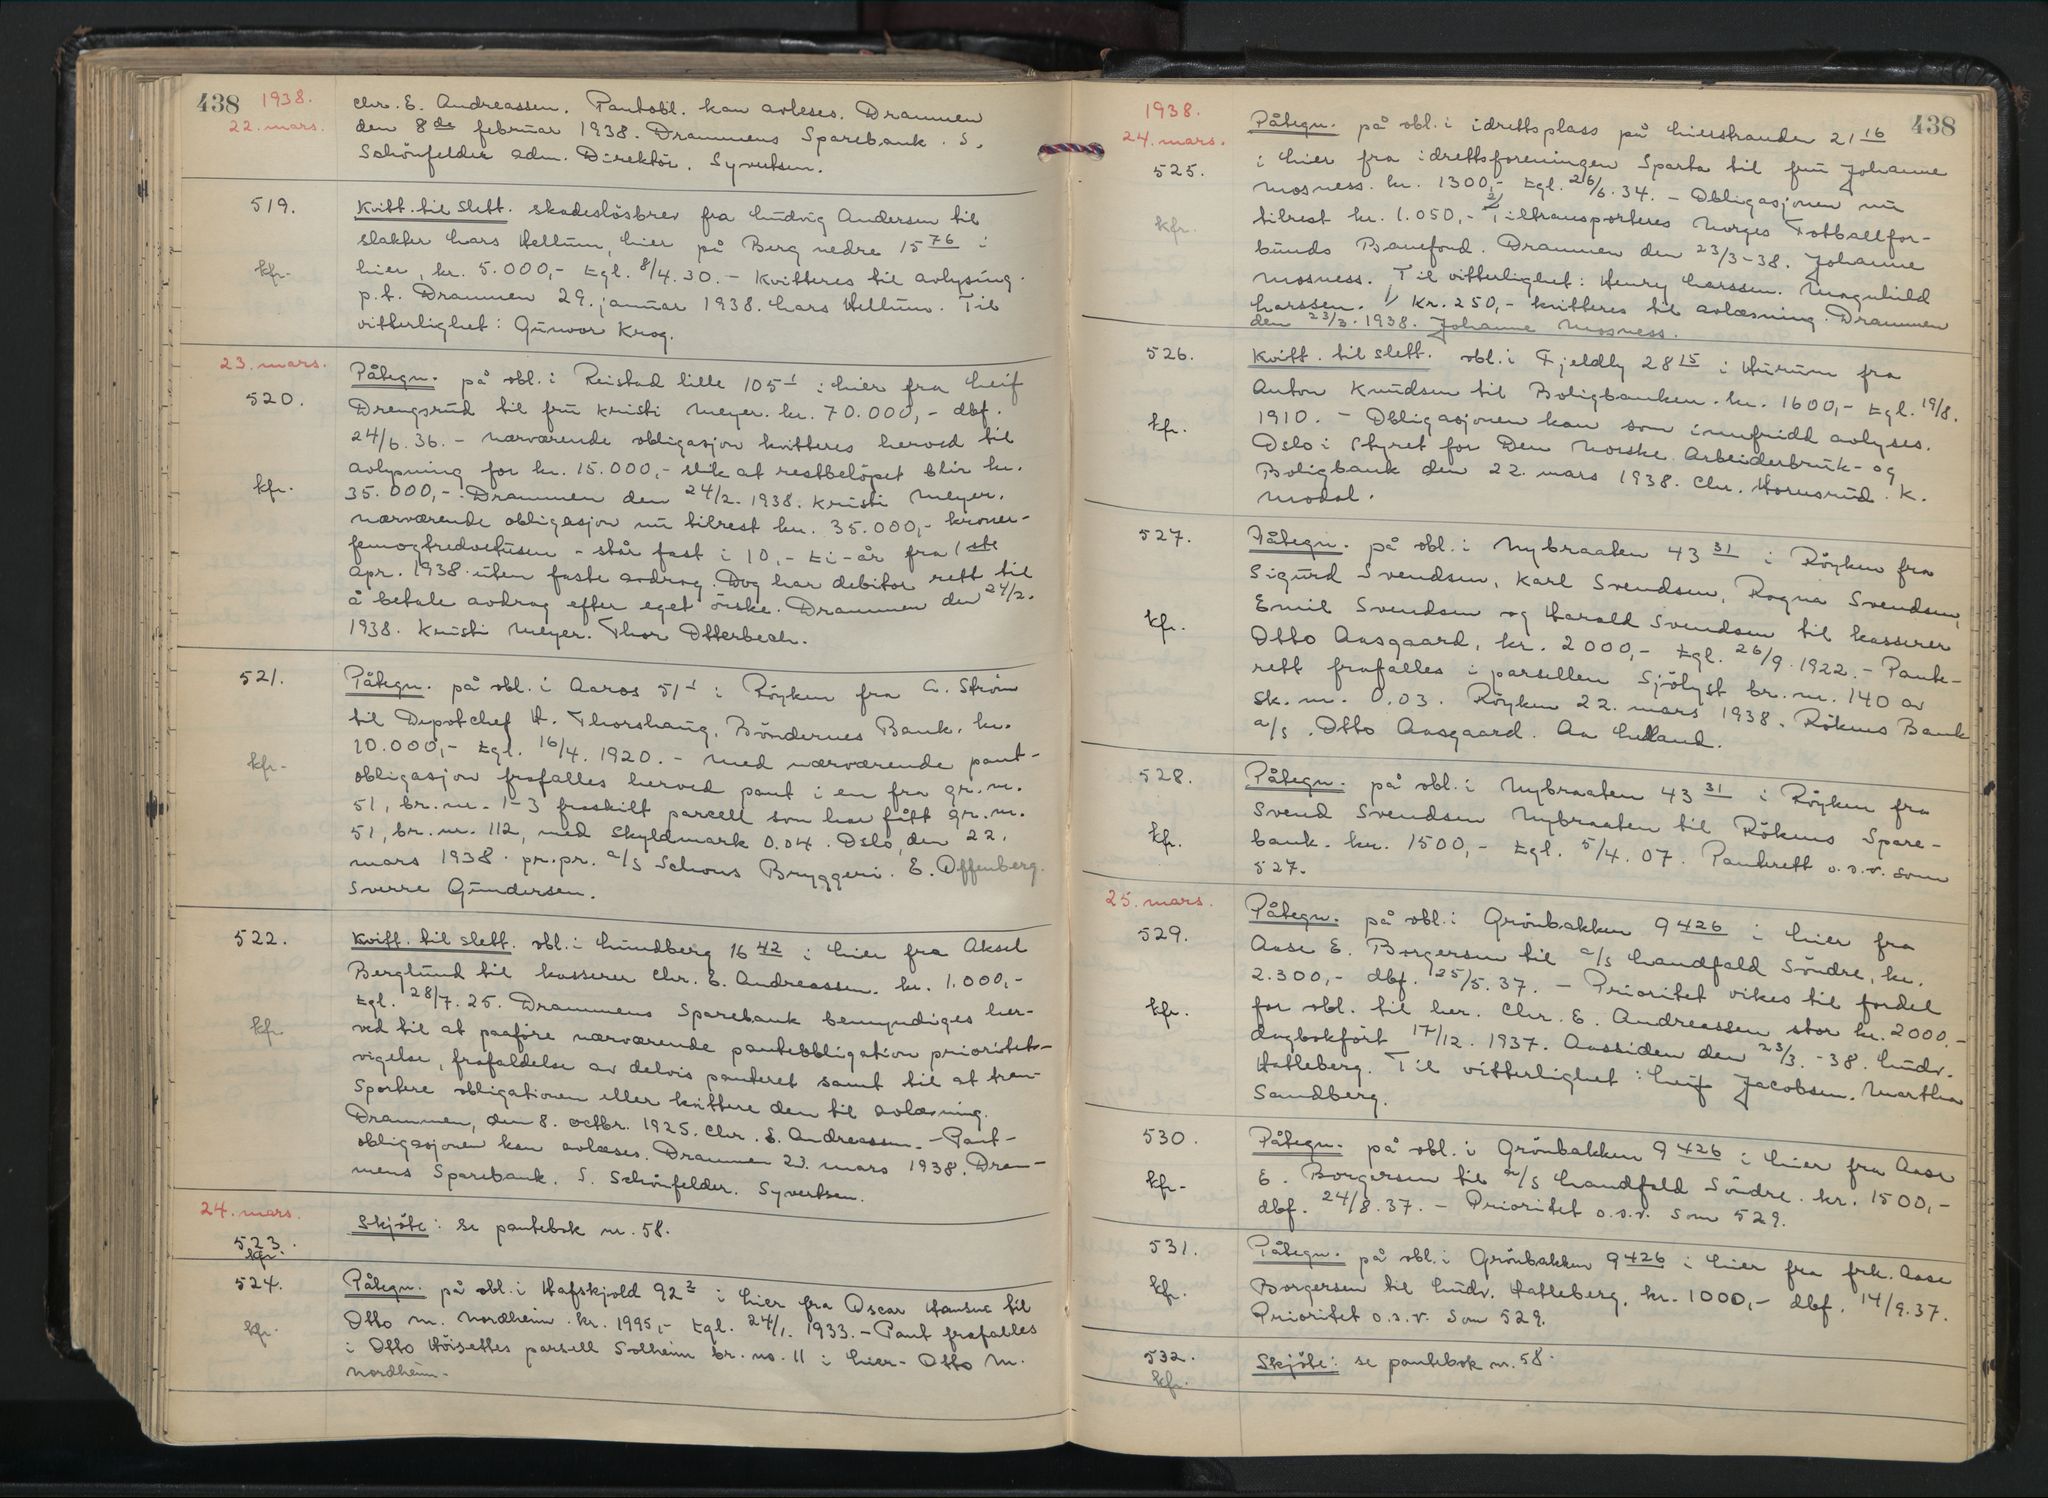 438 1938.
22. mars.
chr. E. Andreassen. Pantobl. kan avleses. Drammen
den 8de februar 1938. Drammens Sparebank. S.
Schönfelder adm. Direktör. Syvertsen.
519.
kfr.
Kvitt. til slett. skadeslösbrev fra Ludvig Andersen til
slakter Lars Hellum, Lier på Berg nedre 15 76 i
Lier, kr. 5.000,- tgl. 8/4.30. - Kvitteres til avlysing.
p.t. Drammen 29. januar 1938. Lars Hellum. Til
vitterlighet: Gunvor Krog.
23. mars.
520.
kfr.
Påtegn. på obl. i Reistad lille 105 1 i Lier fra Leif
Drengsrud til fru Kristi Meyer. kr. 70.000,- dbf.
24/6.36. - Nærværende obligasjon kvitteres herved til
avlysning for kr. 15.000,- slik at restbelöpet blir kr.
35.000,-. Drammen den 24/2. 1938. Kristi Meyer.
Nærværende obligasjon nu tilrest kr. 35.000,- kroner-
femogtredvetusen - står fast i 10,- ti-år fra 1ste
apr. 1938 uten faste avdrag. Dog har debitor rett til
å betale avdrag efter eget önske. Drammen den 24/2.
1938. Kristi Meyer. Thor Otterbech.
521.
kfr.
Påtegn. på obl. i Aaros 51 1 i Röyken fra A. Ström
til Depotchef H. Thorshaug, Böndernes Bank, kr.
10.000,- tgl. 16/4. 1920. - Med nærværende pant-
obligasjon frafalles herved pant i en fra gr.nr.
51, br.nr. 1-3 fraskilt parcell som har fått gr.nr.
51, br.nr. 112, med skyldmark 0.04. Oslo, den 22.
mars 1938. pr.pr. a/s Schous Bryggeri. E. Offenberg.
Sverre Gundersen.
522.
kfr.
Kvitt. til slett. obl. i Lundberg 16 42 i Lier fra Aksel
Berglund til kasserer Chr. E. Andreassen. kr. 1.000,-
tgl. 28/7.25. Drammens Sparebank bemyndiges her-
ved til at paaföre nærværende panteobligation prioritets-
vigelse, frafaldelse av delvis panteret samt til at tran-
sportere obligationen eller kvittere den til avlæsning.
Drammen, den 8. octbr. 1925. Chr. E. Andreassen. - Pant-
obligasjonen kan avlæses. Drammen 23. mars 1938. Dram-
mens Sparebank. S. Schönfelder. Syvertsen.
24. mars.
523.
kfr.
Skjöte: se pantebok nr. 58.
524.
kfr.
Påtegn. på obl. i Hafskjold 92 2 i Lier fra Oscar Hansen til
Otto M. Nordheim. kr. 1995,- tgl. 24/1. 1933. - Pant frafalles
i Otto Höisettes parsell Solheim br. no. 11 i Lier - Otto M.
Nordheim.
1938. 438
24. mars.
525.
kfr.
Påtegn. på obl. i idrettsplass på Lierstranden 21 16
i Lier fra idrettsforeningen Sparta til fru Johanne
Mosness. kr. 1300,- tgl. 26/6.34. - Obligasjonen nu
tilrest kr. 1.050,- 2/ tiltransporteres Norges Fotballfor-
bunds Banefond. Drammen den 23/3-38. Johanne
Mosness. Til vitterlighet: Henry Larssen. Magnhild
Larssen. 1/ Kr. 250,- kvitteres til avlæsning. Drammen
den 23/3. 1938. Johanne Mosness.
526.
kfr.
Kvitt. til slett. obl. i Fjeldly 28 15 i Hurum fra
Anton Knudsen til Boligbanken. kr. 1600,- tgl. 19/8.
1910. - Obligasjonen kan som innfridd avlyses.
Oslo i styret for Den Norske Arbeiderbruk- og
Boligbank den 22. mars 1938. Chr. Hornsrud. K.
Modal.
527.
kfr.
Påtegn. på obl. i Nybraaten 43 31 i Röyken fra
Sigurd Svendsen, Karl Svendsen, Ragna Svendsen,
Emil Svendsen og Harald Svendsen til kasserer
Otto Aasgaard, kr. 2000,- tgl. 26/9.1922. - Pante-
rett frafalles i parsellen Sjölyst br.nr. 140 av
sk.m. 0.03. Röyken 22. mars 1938. Rökens Bank
a/s. Otto Aasgaard. Aa Lielland.
528.
kfr.
Påtegn. på obl. i Nybraaten 43 31 i Röyken fra
Svend Svendsen Nybraaten til Rökens Spare-
bank. kr. 1500,- tgl. 5/4.07. Panterett o.s.v. som
527.
25. mars.
529.
kfr.
Påtegn. på obl. i Grönbakken 9 426 i Lier fra
Aase E. Borgersen til a/s Landfald Söndre, kr.
2.300,- dbf. 25/5.37. - Prioritet vikes til fordel
for obl. til her. Chr. E. Andreassen stor kr. 2000.-
dagbokfört 17/12. 1937. Aassiden den 23/3.-38. Ludv.
Hatleberg. Til vitterlighet: Leif Jacobsen. Martha
Sandberg.
530.
kfr.
Påtegn. på obl. i Grönbakken 9 426 i Lier fra Aase
E. Borgersen til a/s Landfald Söndre. kr. 1500,-
dbf. 24/8.37. - Prioritet o.s.v. som 529.
531.
kfr.
Påtegn. på obl. i Grönbakken 9 426 i Lier fra frk. Aase
Borgersen til Ludv. Hatleberg, kr. 1000,- dbf. 14/9.37.
Prioritet o.s.v. som 529.
532.
kfr.
Skjöte: se pantebok nr. 58.